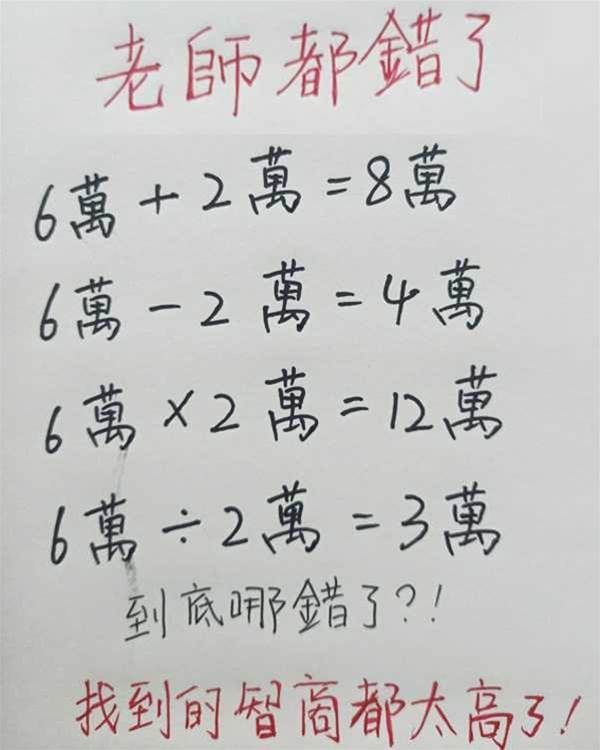 老師都錯了
6萬+2萬=8萬
6萬-2萬=4萬
6萬×2萬=12萬
6萬÷2萬=3萬
到底哪錯了?!
找到的智商都太高了!